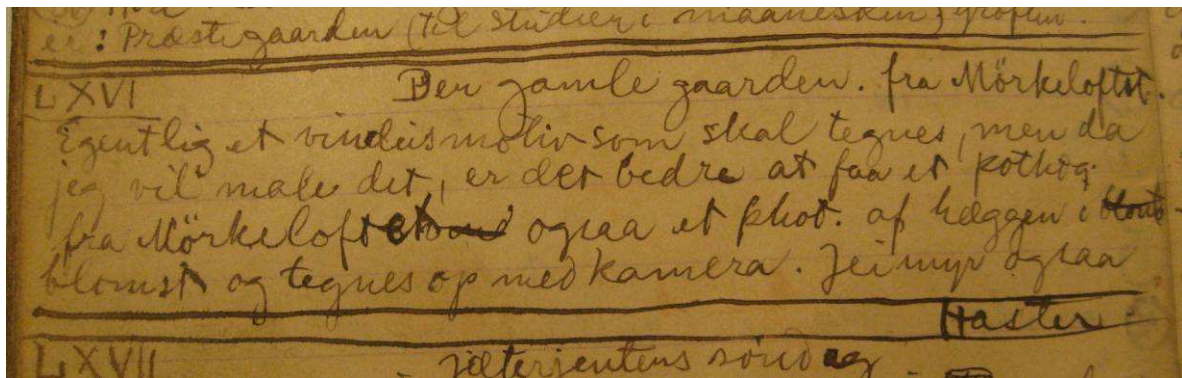 er: Præstegaarden (til studier i maaneskin, grøften.
LXVI Den gamle gaarden. fra Mörkeloftet.
Egentlig et vindusmotiv som skal tegnes, men da
jeg vil male det, er det bedre at faa et pothog.
fra Mörkeloftet ogsaa et phot. af hæggen i
blomst og tegnes op med kamera. Jeimyr ogsaa
Haster
LXVII jæterjentens søndag